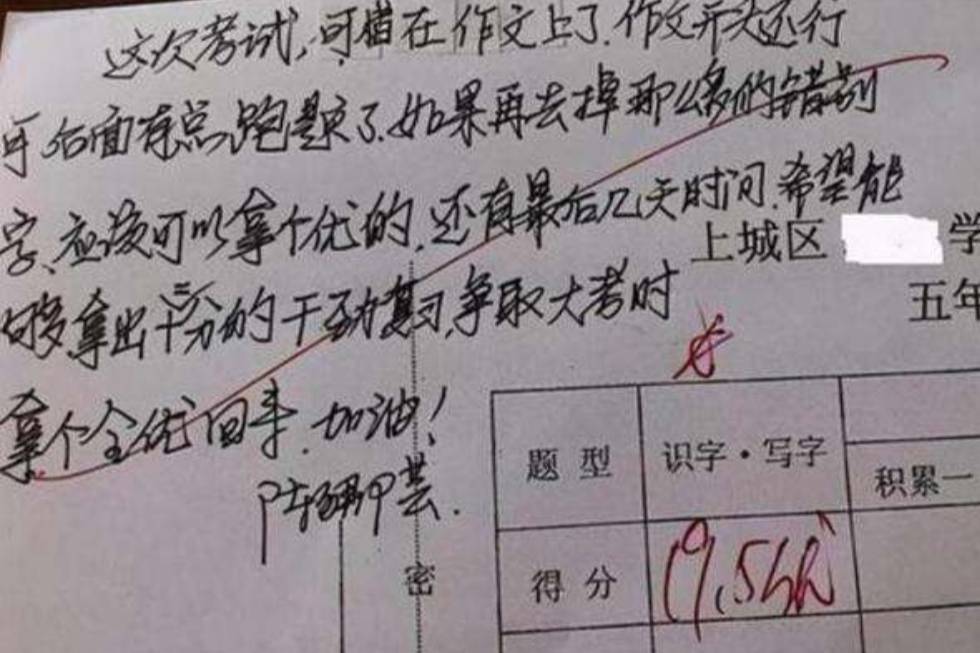 这次考试，可惜在作文上了.作文开头还行
可后面有点跑题了.如果再去掉那么多的错别
字、应该可以拿个优的.还有最后几天时间.希望能
上城区 学
够拿出十二分的干劲复习.争取大考时
五年
拿个全优回来.加油！
密
题 型 识字·写字
积累一
得 分 19.5